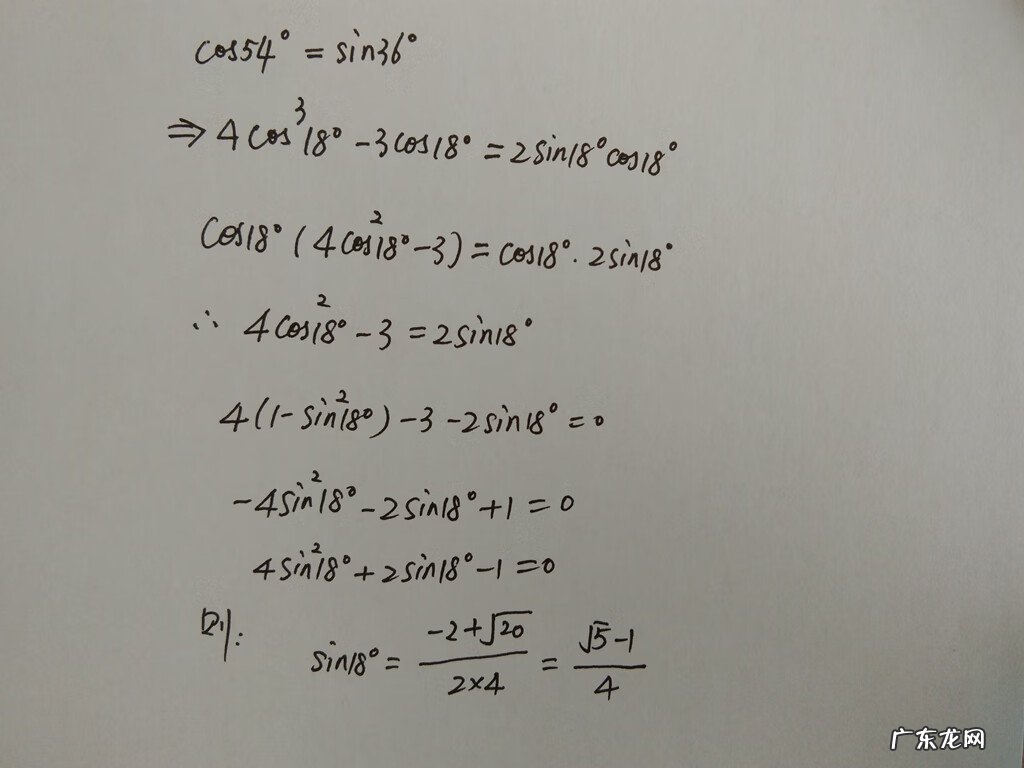 cos54° = sin36°
⇒ 4cos³18° - 3cos18° = 2sin18°cos18°
cos18° (4cos²18° - 3) = cos18° · 2sin18°
∴ 4cos²18° - 3 = 2sin18°
4(1 - sin²18°) - 3 - 2sin18° = 0
-4sin²18° - 2sin18° + 1 = 0
4sin²18° + 2sin18° - 1 = 0
则: sin18° = (-2+√20)/(2×4) = (√5-1)/4
广东龙网